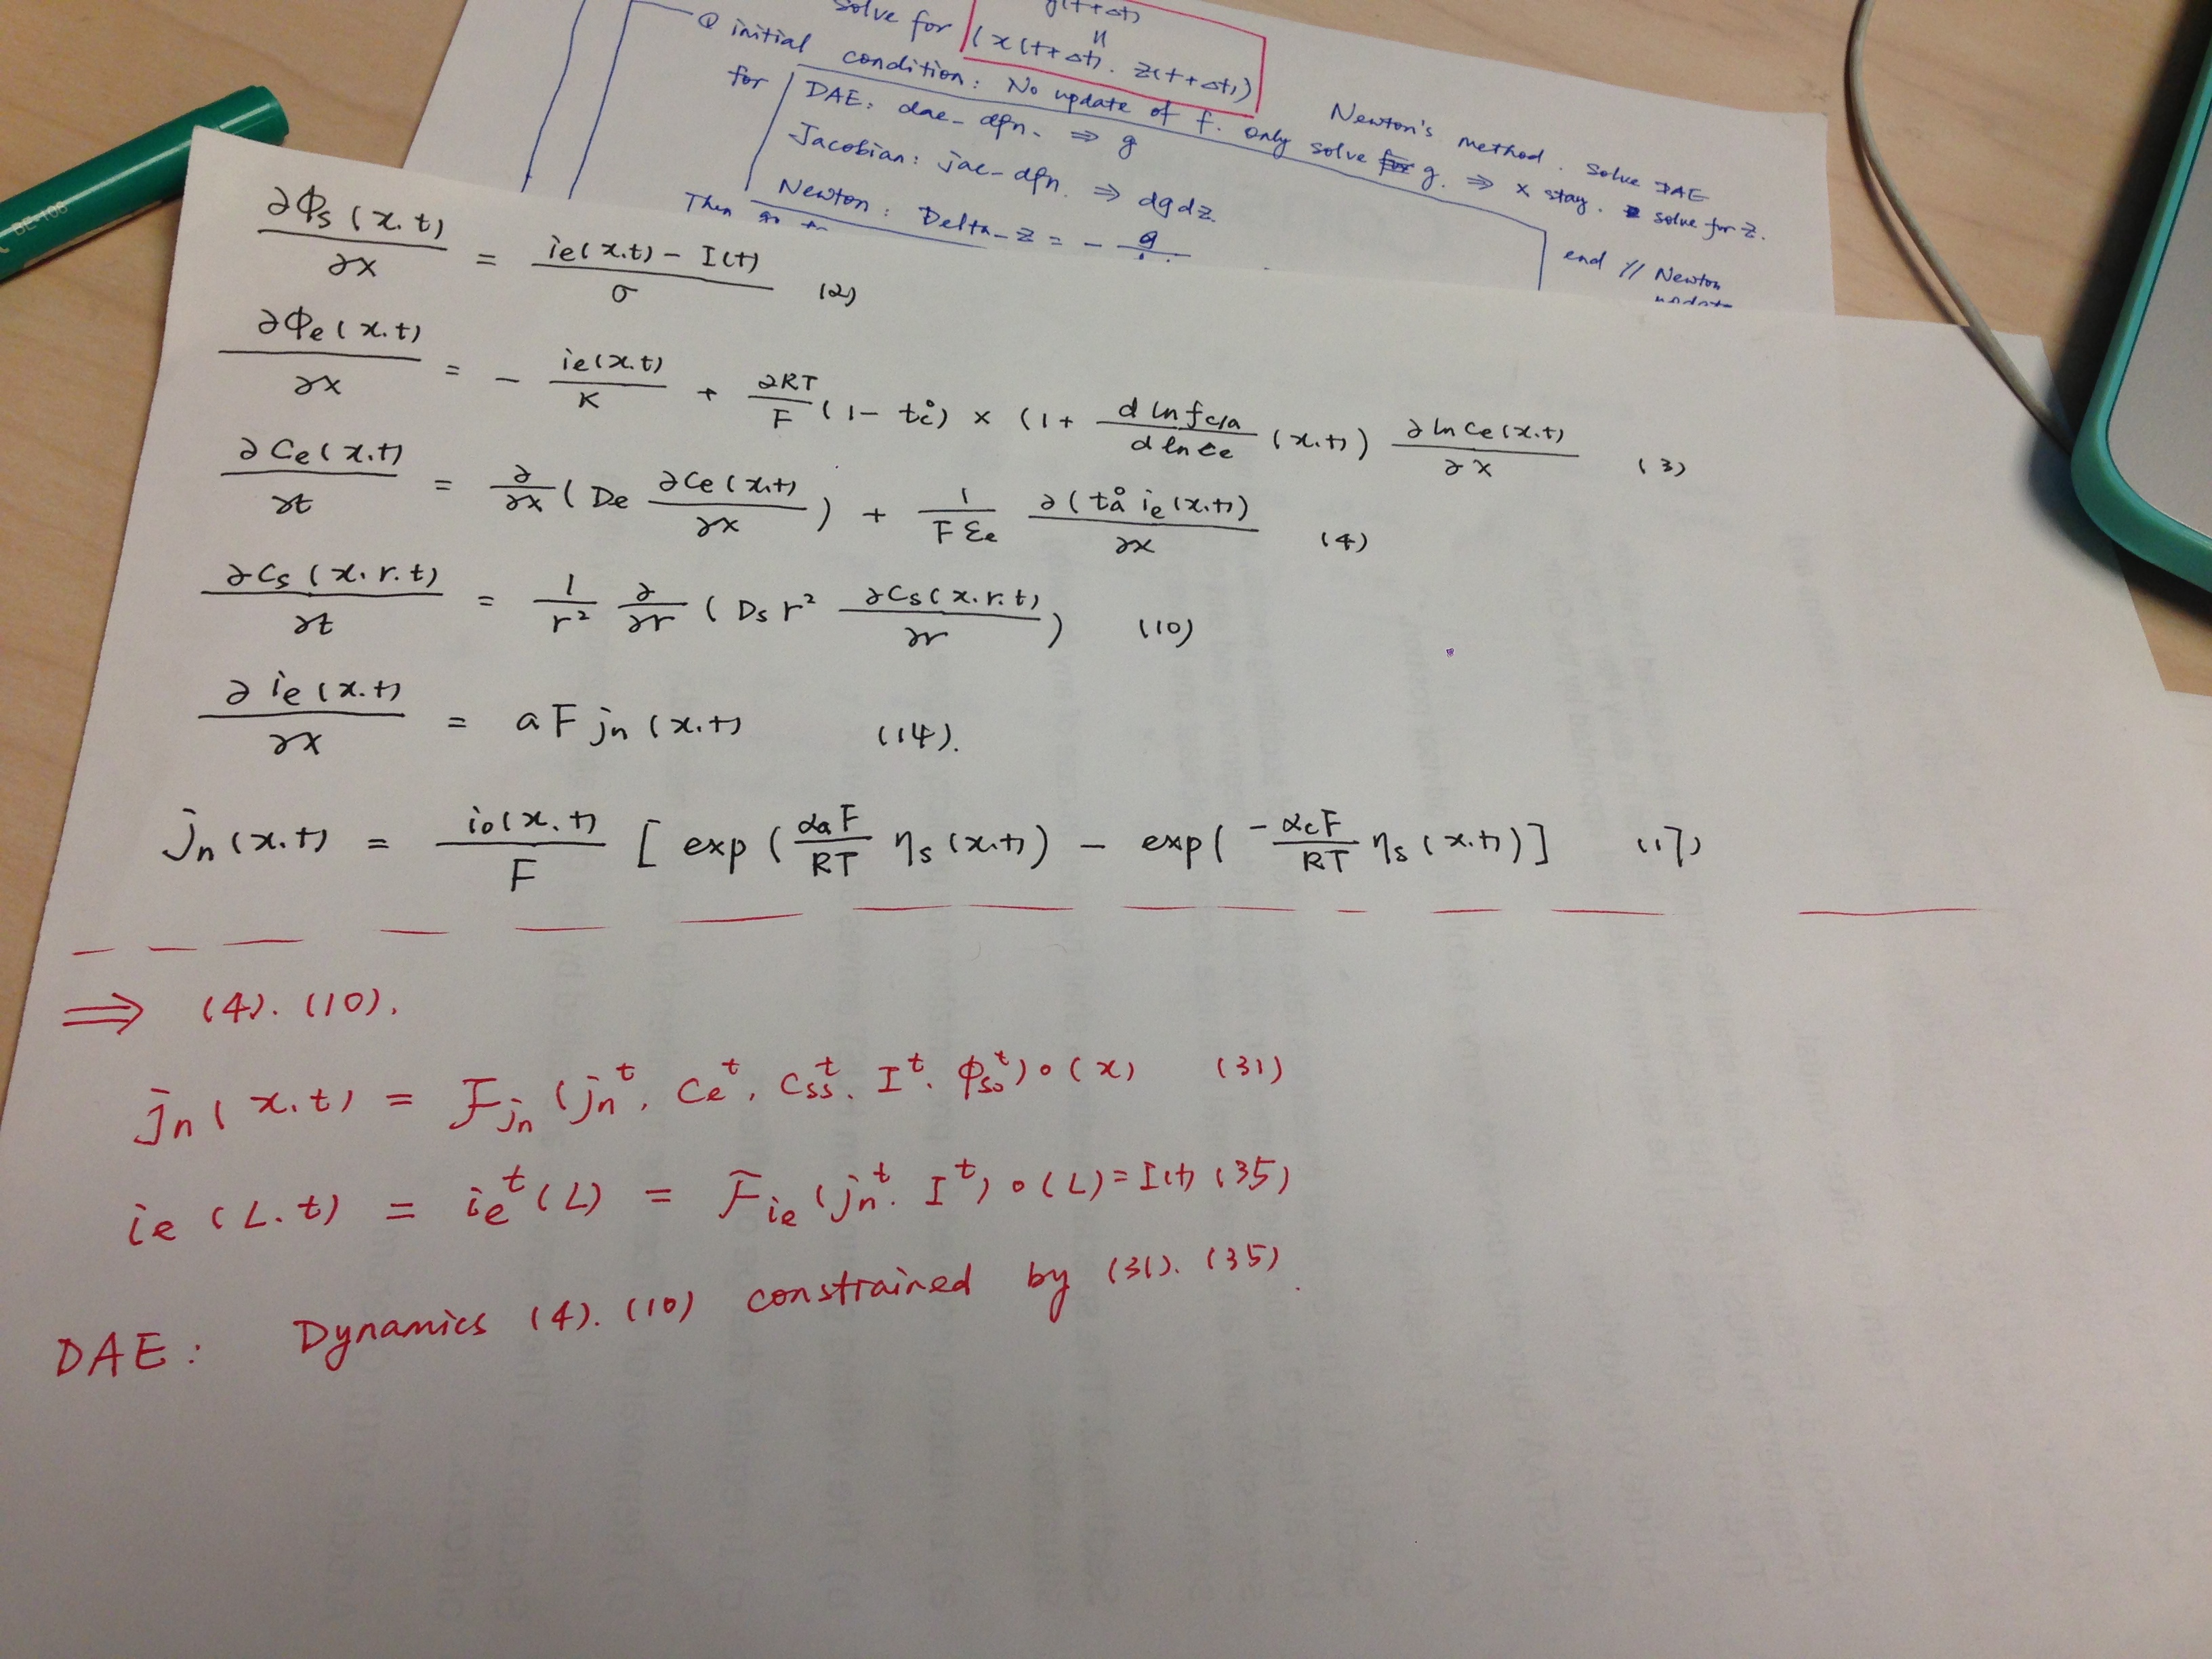 solve for
y(t+Δt)
(x(t+Δt). z(t+Δt))
① initial condition: No update of f. only solve for g. ⇒ x stay. solve for z.
Newton's method. solve DAE
for DAE: dae_dfn. ⇒ g
Jacobian: jac_dfn. ⇒ dgdz.
Newton: Delta_z = - g
Then
end // Newton
update
DE·108
∂Φs(x.t)/∂x = (ie(x.t) - I(t))/σ (2)
∂Φe(x.t)/∂x = - ie(x.t)/κ + 2RT/F (1 - tc°) × (1 + d ln fc/a / d ln ce (x.t)) ∂ ln ce(x.t)/∂x (3)
∂Ce(x.t)/∂t = ∂/∂x (De ∂Ce(x.t)/∂x) + 1/(F εe) ∂(ta° ie(x.t))/∂x (4)
∂Cs(x.r.t)/∂t = 1/r² ∂/∂r (Ds r² ∂Cs(x.r.t)/∂r) (10)
∂ie(x.t)/∂x = a F jn(x.t) (14).
jn(x.t) = io(x.t)/F [exp(αaF/RT ηs(x.t)) - exp(-αcF/RT ηs(x.t))] (17)
⇒ (4). (10).
jn(x.t) = Fjn(jn^t, Ce^t, Css^t. I^t. ϕso^t)∘(x) (31)
ie(L.t) = ie^t(L) = Fie(jn^t. I^t)∘(L) = I(t) (35)
DAE: Dynamics (4). (10) constrained by (31). (35).